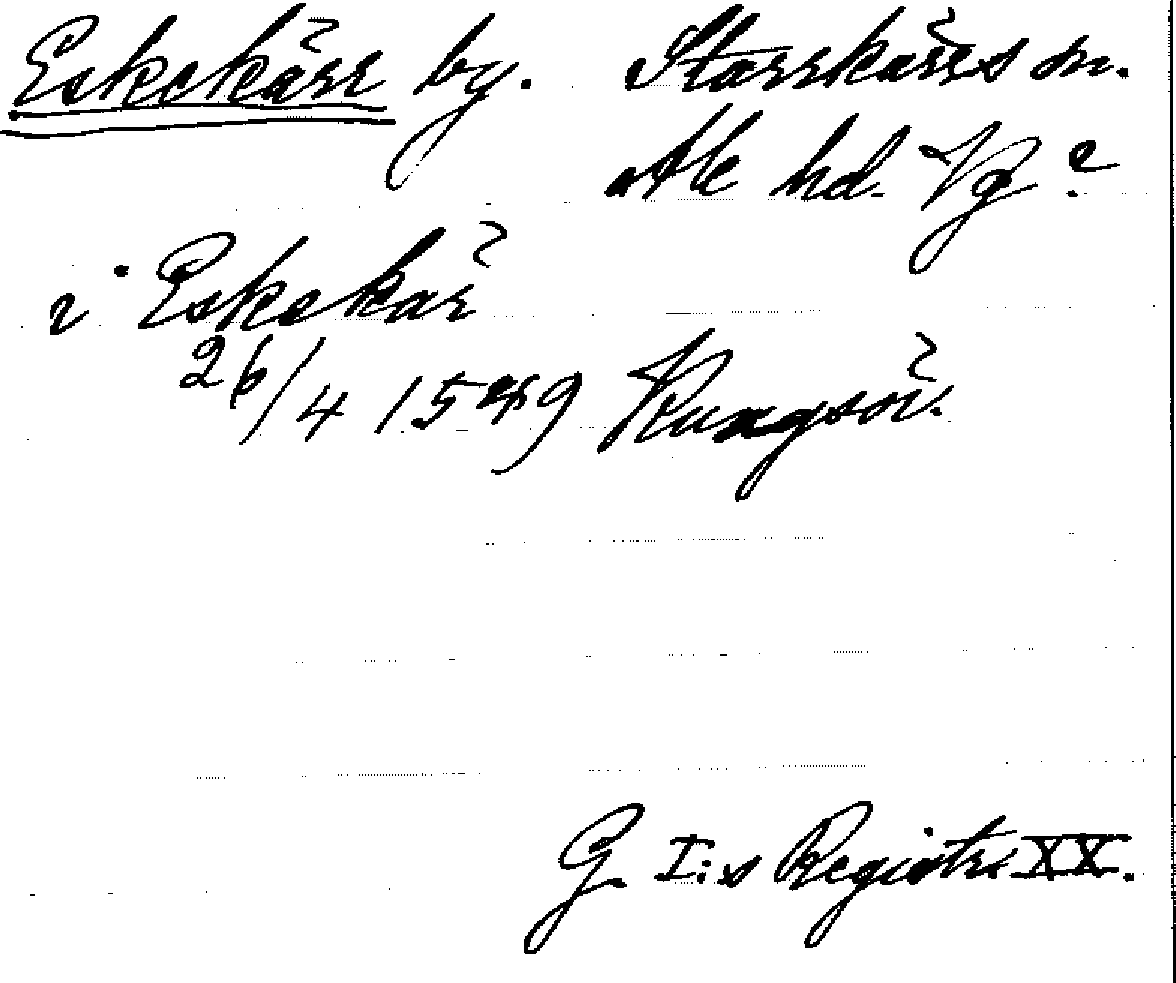 Eskekärr by. Starrkärrs sn.
Ale hd. Vg ?
i Eskekär
26/4 1549 Kungsör.
G I:s Registr. XX.